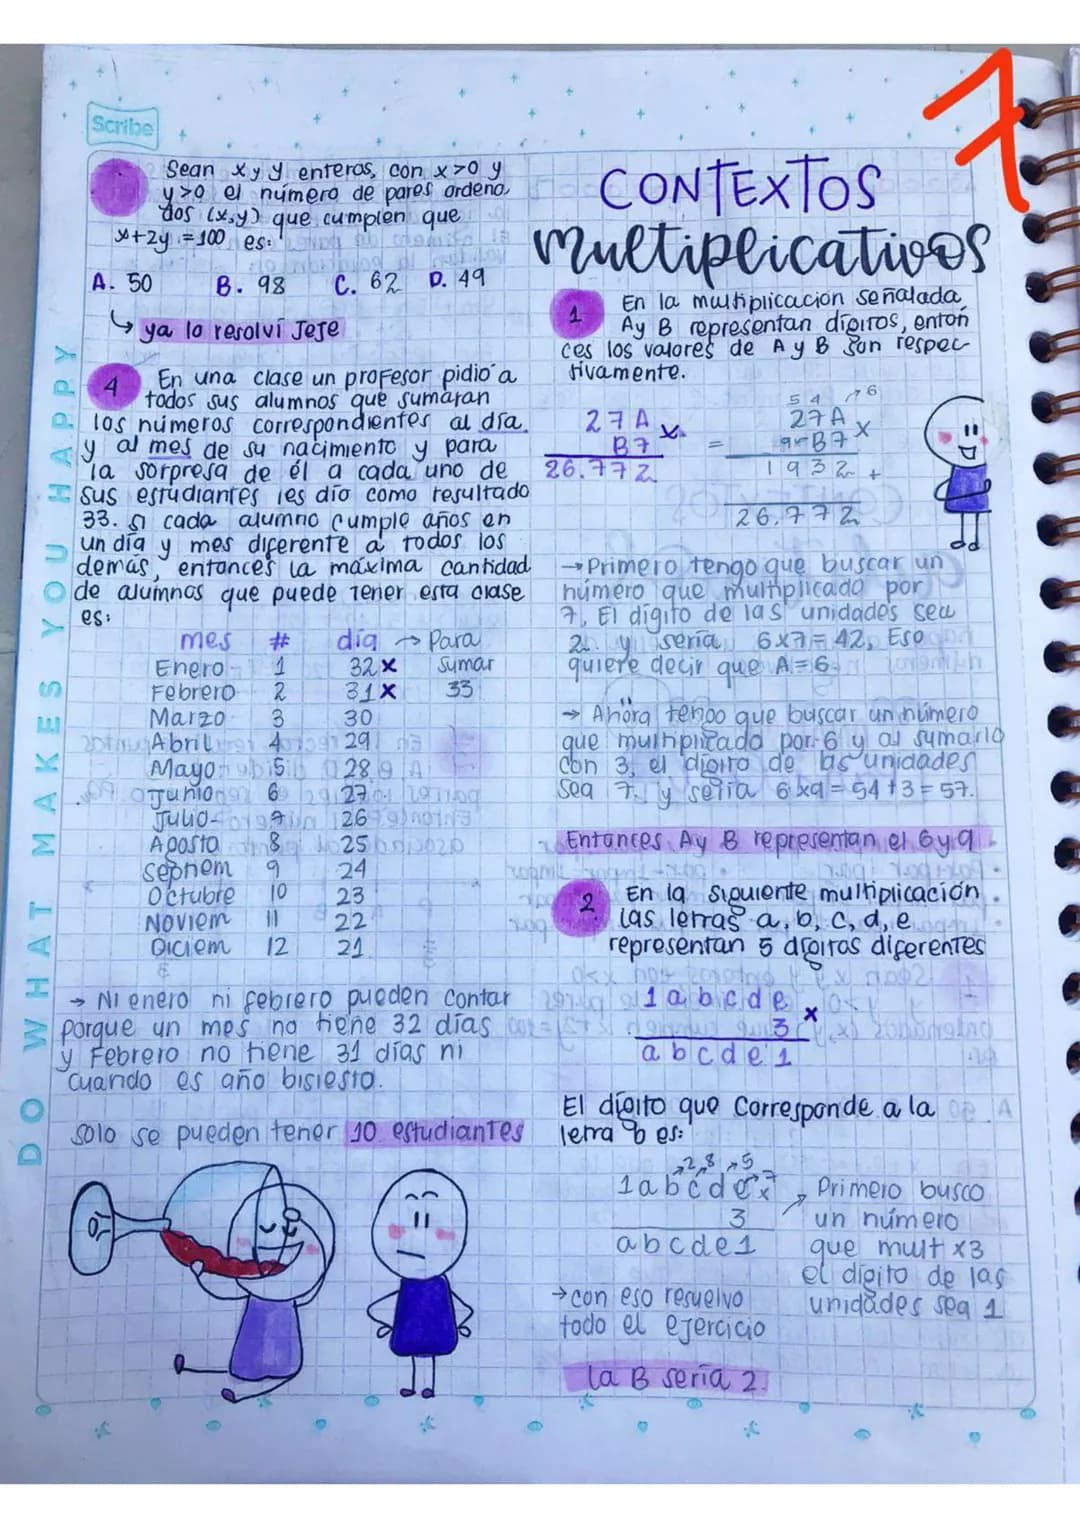 1
Scribe
DO WHAT MAKES YOU HAPPY
Sean x y y enteros, con x>0 y
y>0 el número de pares ordena
dos (x,y) que cumplen que
x+2y = 100 es:
A. 50 B. 98 C. 62 D. 49
↳ ya lo resolví Jeje
4 En una clase un profesor pidió a
todos sus alumnos que sumaran
los números correspondientes al día
y al mes de su nacimiento y para
la sorpresa de él a cada uno de
sus estudiantes les dio como resultado
33. si cada alumno cumple años en
un día y mes diferente a todos los
demás, entonces la máxima cantidad
de alumnos que puede tener esta clase
es:
mes # día → Para
Enero 1 32 x sumar
Febrero 2 31 x 33
Marzo 3 30
Abril 4 29
Mayo 5 28
Junio 6 27
Julio 7 26
Agosto 8 25
septiem 9 24
Octubre 10 23
Noviem 11 22
Diciem 12 21
→ Ni enero ni febrero pueden contar
porque un mes no tiene 32 días
y Febrero no tiene 31 días ni
cuando es año bisiesto.
solo se pueden tener 10 estudiantes
CONTEXTOS
multiplicativos
1 En la multiplicación señalada
A y B representan dígitos, enton
ces los valores de A y B son respec
tivamente.
27A x
B7
26.772
=
5 4 → 6
27A x
9←B7
1932 +
26.772
→ Primero tengo que buscar un
número que multiplicado por
7, El dígito de las unidades sea
2. y sería 6x7=42, Eso
quiere decir que A=6
→ Ahora tengo que buscar un número
que multiplicado por 6 y al sumarlo
con 3, el dígito de las unidades
sea 7. y sería 6x9=54+3=57.
Entonces A y B representan el 6 y 9
2 En la siguiente multiplicación
las letras a, b, c, d, e
representan 5 dígitos diferentes
1 a b c d e x
3
a b c d e 1
El dígito que corresponde a la
letra b es:
2 8 5
1 a b c d e 7 x
3
a b c d e 1
→ Primero busco
un número
que mult x3
el dígito de las
unidades sea 1
→ con eso resuelvo
todo el ejercicio
la B sería 2.